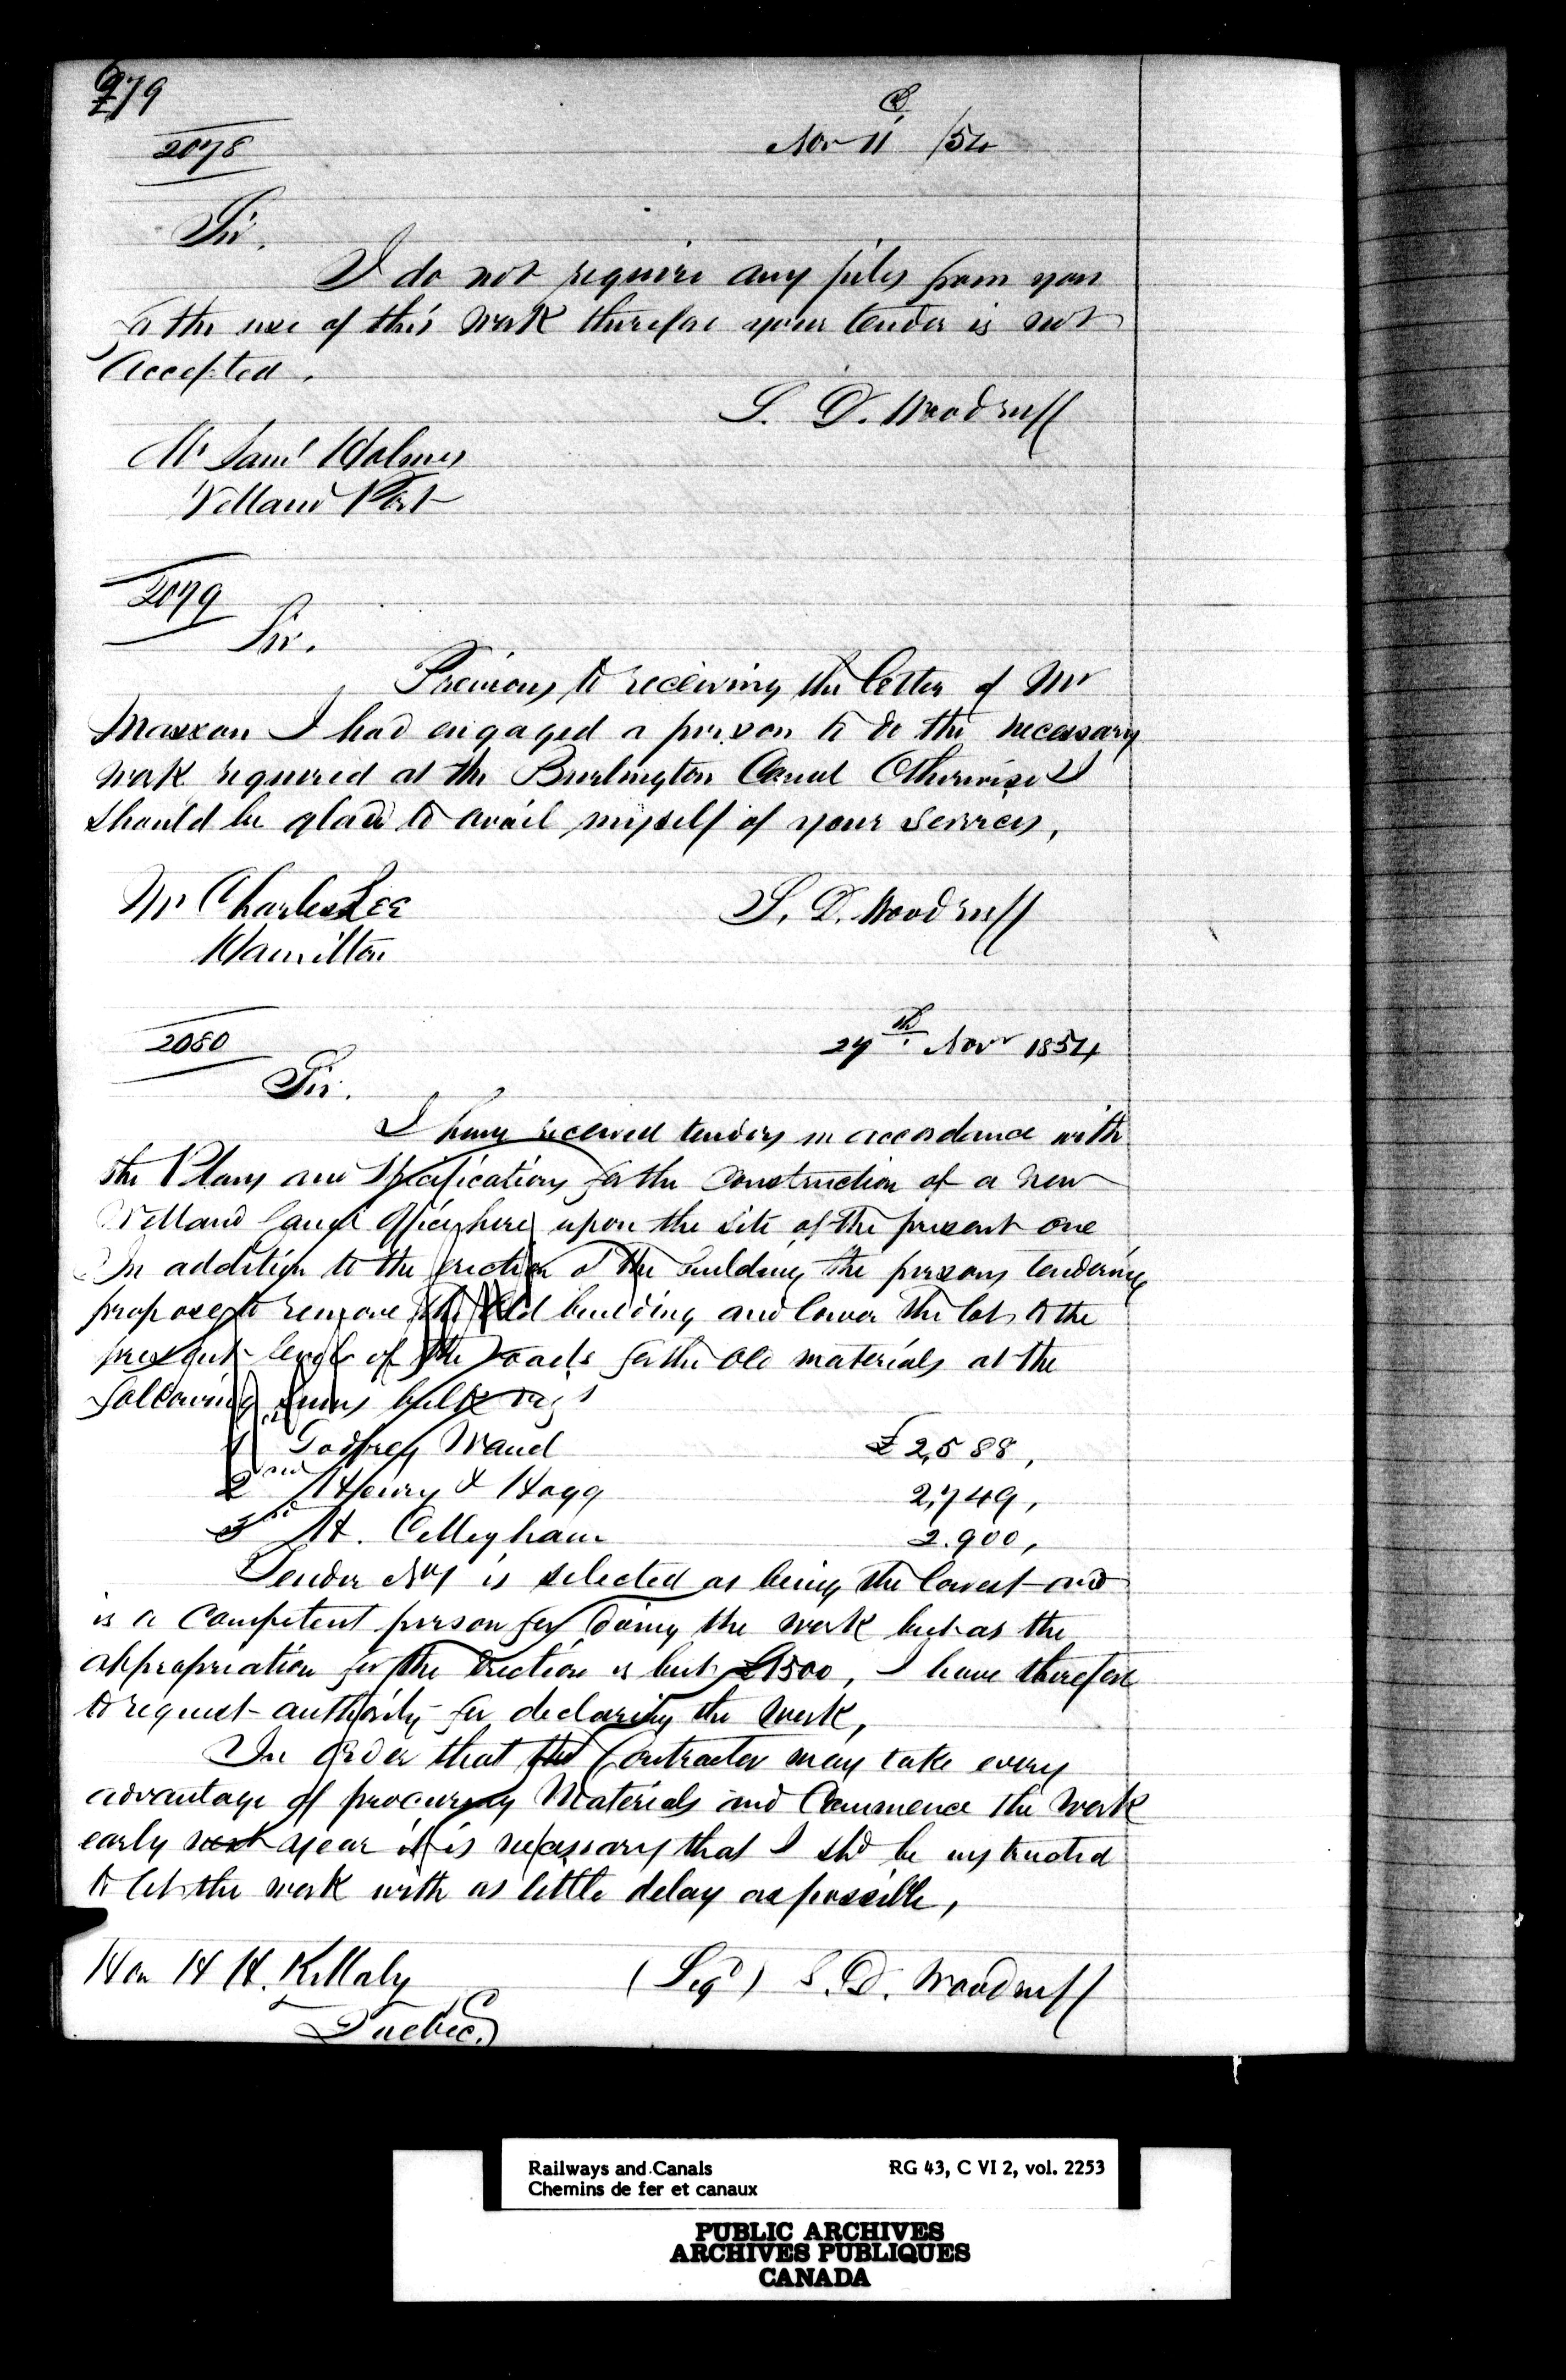 279
2078
Nov 11 /54
Sir.
I do not require any piles from you
for the use of this work therefore your tender is not
Accepted.
S. D. Woodruff
Mr Saml Holmes
Welland Port
2079
Sir.
Previous to receiving the letter of Mr
Maxxon I had engaged a person to do the necessary
work required at the Burlington Canal Otherwise I
should be glad to avail myself of your services,
Mr Charles Lee
S. D. Woodruff
Hamilton
2080
27th Novr 1854
Sir.
I have received tenders in accordance with
the Plans and Specifications for the Construction of a new
Welland Canal Office here upon the site of the present one
In addition to the erection of the building the persons tendering
propose to remove the old building and lower the lot to the
present level of the roads for the old materials at the
following sums
1st Godfrey Waud
£2,588,
2nd Henry & Hogg
2,749,
3rd H.
2.900,
Tender No 1 is selected as being the lowest and
is a Competent person for doing the work but as the
appropriation for the Erection is but £1500, I have therefore
to request authority for declaring the work,
In Order that the Contractor may take every
advantage of procuring Materials and Commence the work
early next year it is necessary that I shd be instructed
to let the work with as little delay as possible,
Hon H H. Killaly
(Sigd) S. D. Woodruff
Quebec.
Railways and Canals
Chemins de fer et canaux
RG 43, C VI 2, vol. 2253
PUBLIC ARCHIVES
ARCHIVES PUBLIQUES
CANADA